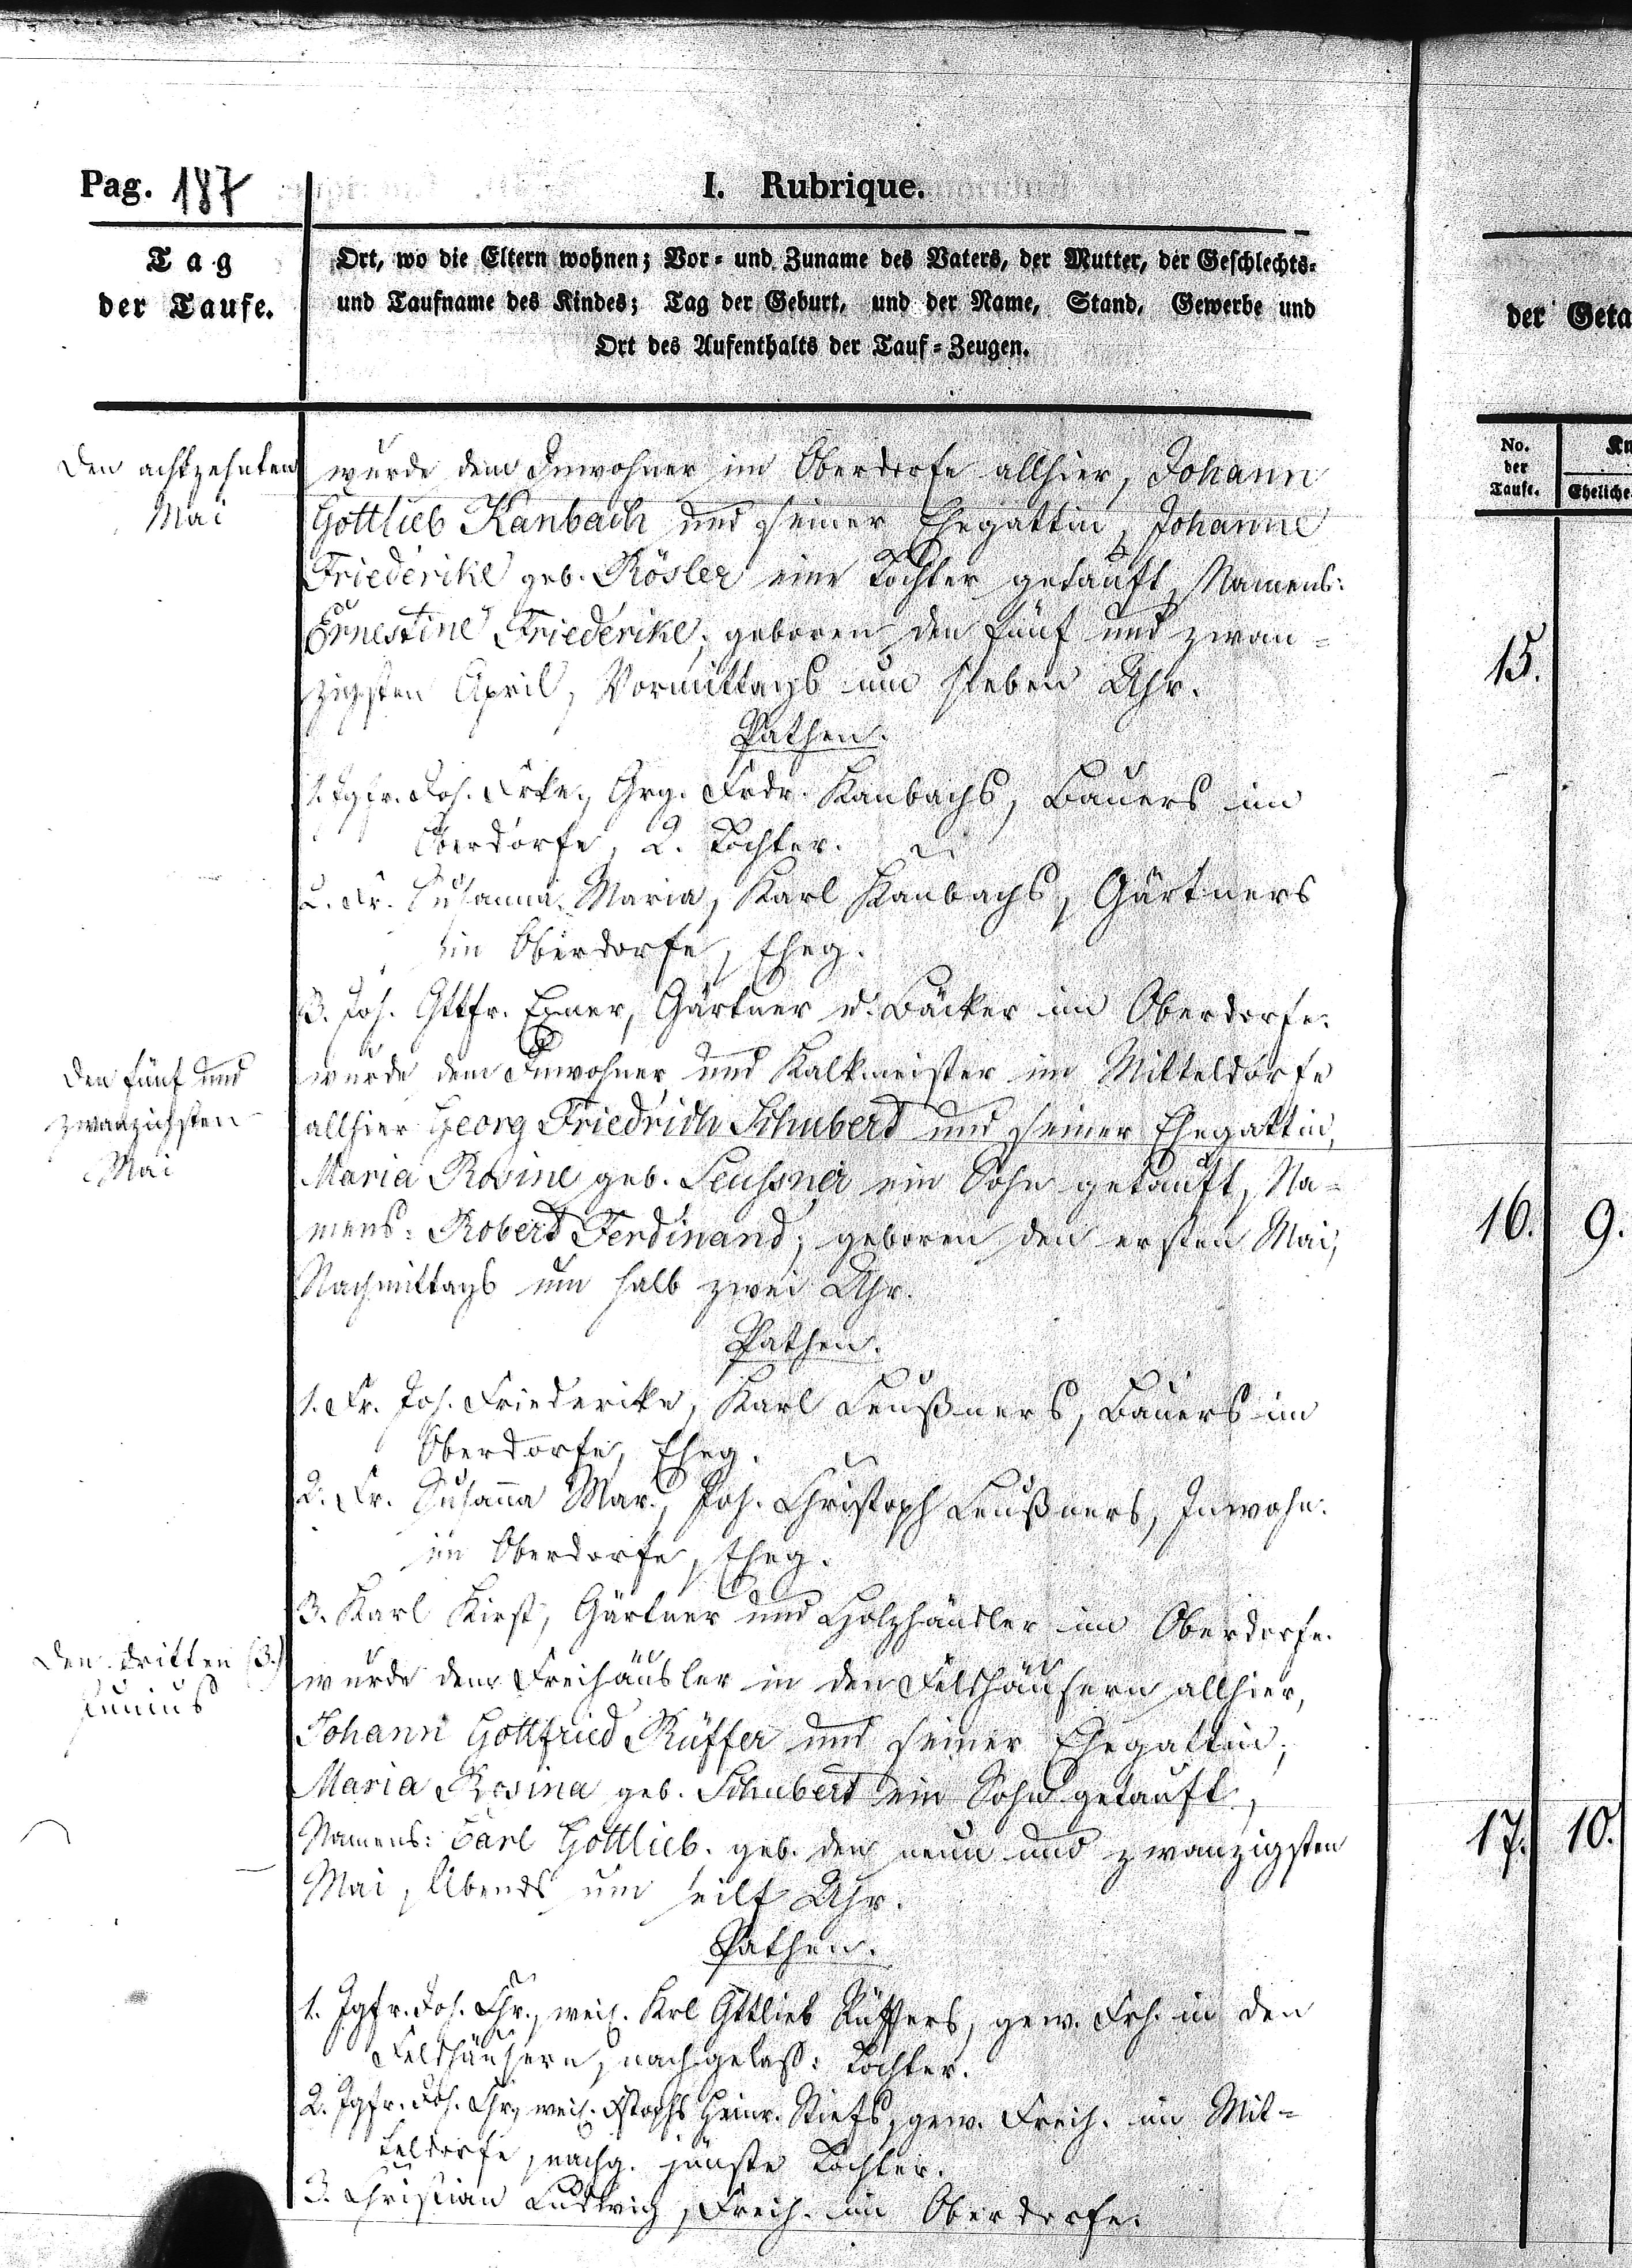 Pag. 187
I. Rubrique.
Tag
der Taufe.
Ort, wo die Eltern wohnen; Vor- und Zuname des Vaters, der Mutter, der Geschlechts-
und Taufname des Kindes; Tag der Geburt, und der Name, Stand, Gewerbe und
Ort des Aufenthalts der Tauf-Zeugen.
der Geta
No.
der
Taufe.
Eheliche
Den achtzehnten
Mai
wurde dem Inwohner im Oberdorfe allhier, Johann
Gottlieb Kanbach und seiner Ehegattin, Johanne
Friederike geb. Rösler eine Tochter getauft, Namens:
Ernestine Friederike; geboren den fünf und zwan-
zigsten April, Vormittags um sieben Uhr.
15.
Pathen.
1. Jgfr. Joh. Frke, Grg. Frdr. Kanbachs, Bauers im
Oberdorfe, 2. Tochter.
2. Fr. Susanna Maria, Karl Kanbachs, Gärtners
im Oberdorfe, Eheg.
3. Joh. Gttfr. Exner, Gärtner u. Bäcker im Oberdorfe.
Den fünf und
zwanzigsten
Mai
wurde dem Inwohner und Kalkmeister im Mitteldorfe
allhier Georg Friedrich Schubert und seiner Ehegattin,
Maria Rosine geb. Leussner ein Sohn getauft, Na-
mens: Robert Ferdinand; geboren den ersten Mai,
Nachmittags um halb zwei Uhr.
16. 9.
Pathen.
1. Fr. Joh. Friederike, Karl Leußners, Bauers im
Oberdorfe, Eheg.
2. Fr. Susanna Mar., Joh. Christoph Leußners, Inwohn.
im Oberdorfe, Eheg.
3. Karl Kirst, Gärtner und Holzhändler im Oberdorfe.
Den dritten (3.)
Junius
wurde dem Freihäusler in den Feldhäusern allhier,
Johann Gottfried Rüffer und seiner Ehegattin,
Maria Rosina geb. Schubert ein Sohn getauft,
Namens: Carl Gottlieb. geb. den neun und zwanzigsten
Mai, Abends um eilf Uhr.
17. 10.
Pathen.
1. Jgfr. Joh. Chr., weil. Krl Gttlieb Rüffers, gew. Frh. in den
Feldhäusern, nachgelass: Tochter.
2. Jgfr. Joh. Chr., weil. Heinr. gew. Freih. im Mit-
teldorfe, nachg. jünste Tochter.
3. Christian Ludwig, Freih. im Oberdorfe.